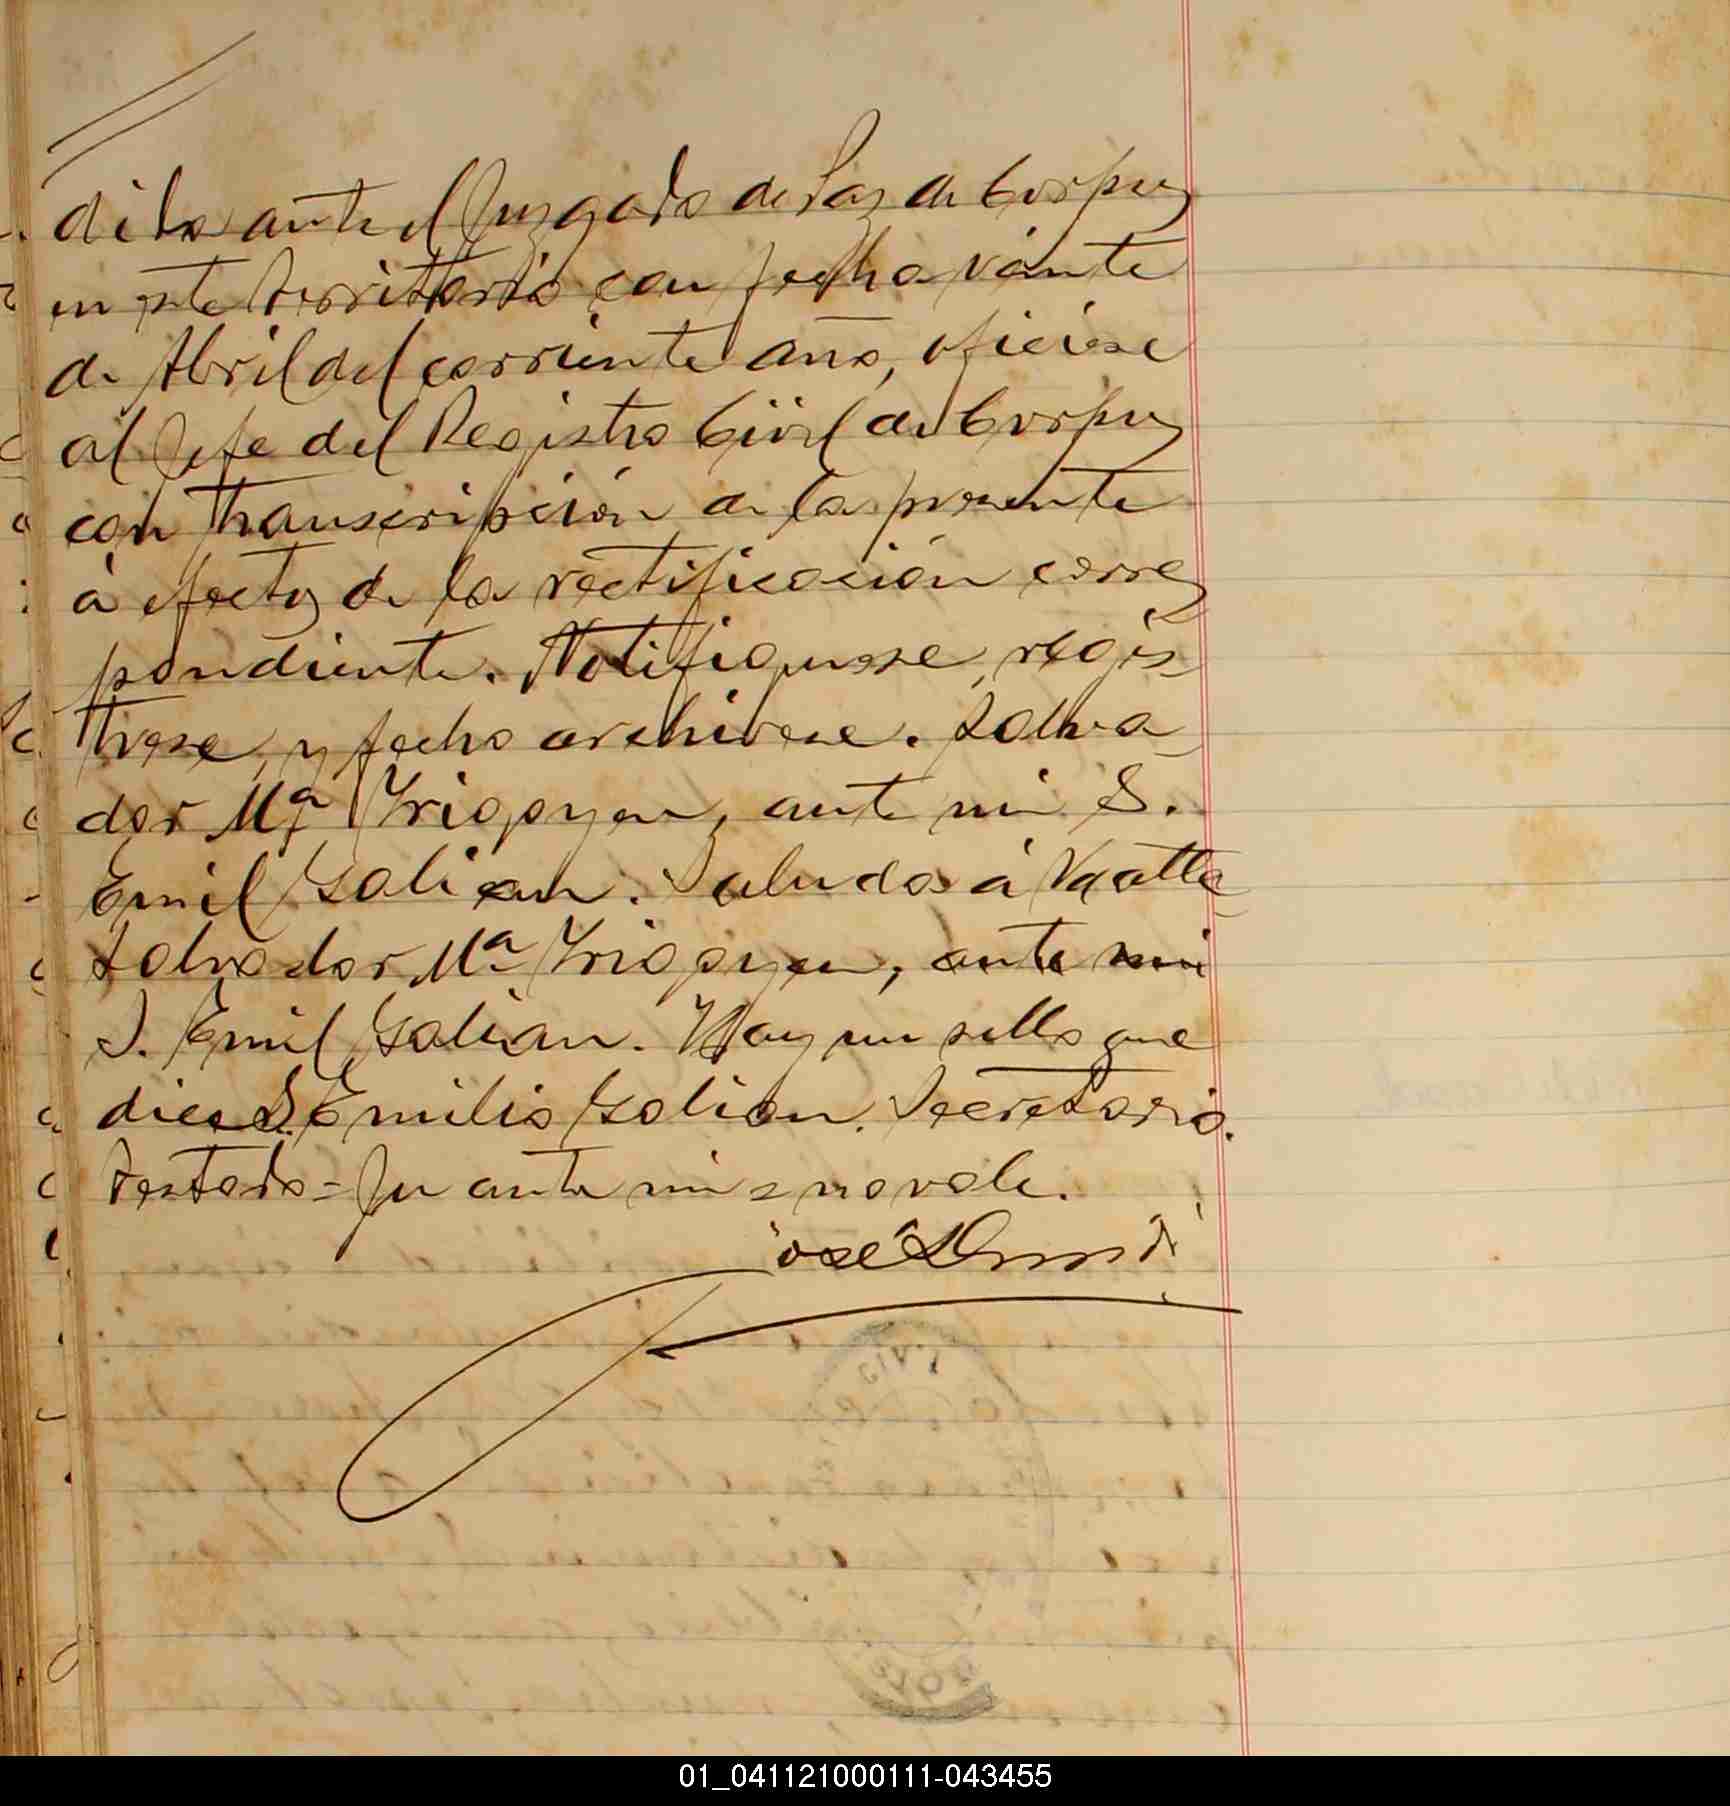 dido ante el Juzgado de Paz de Corpus
en este Territtorio con fecha veinte
de Abril del corriente año, oficiese
al Jefe del Registro Civil de Corpus
con transcripción de la presente
á efectos de la rectificación corres
pondiente. Notifiquese, regis
trese, y fecho archivese. Salva
dor Mª Yrigoyen, ante mi S.
Emil Galian. Saluda á Vd atte
Salvador Mª Yrigoyen, ante mi
S. Emil Galian. Hay un sello que
dice S. Emilio Galian. Secretario.
Testado = Ju ante mi = no vale.
José
01_041121000111-043455